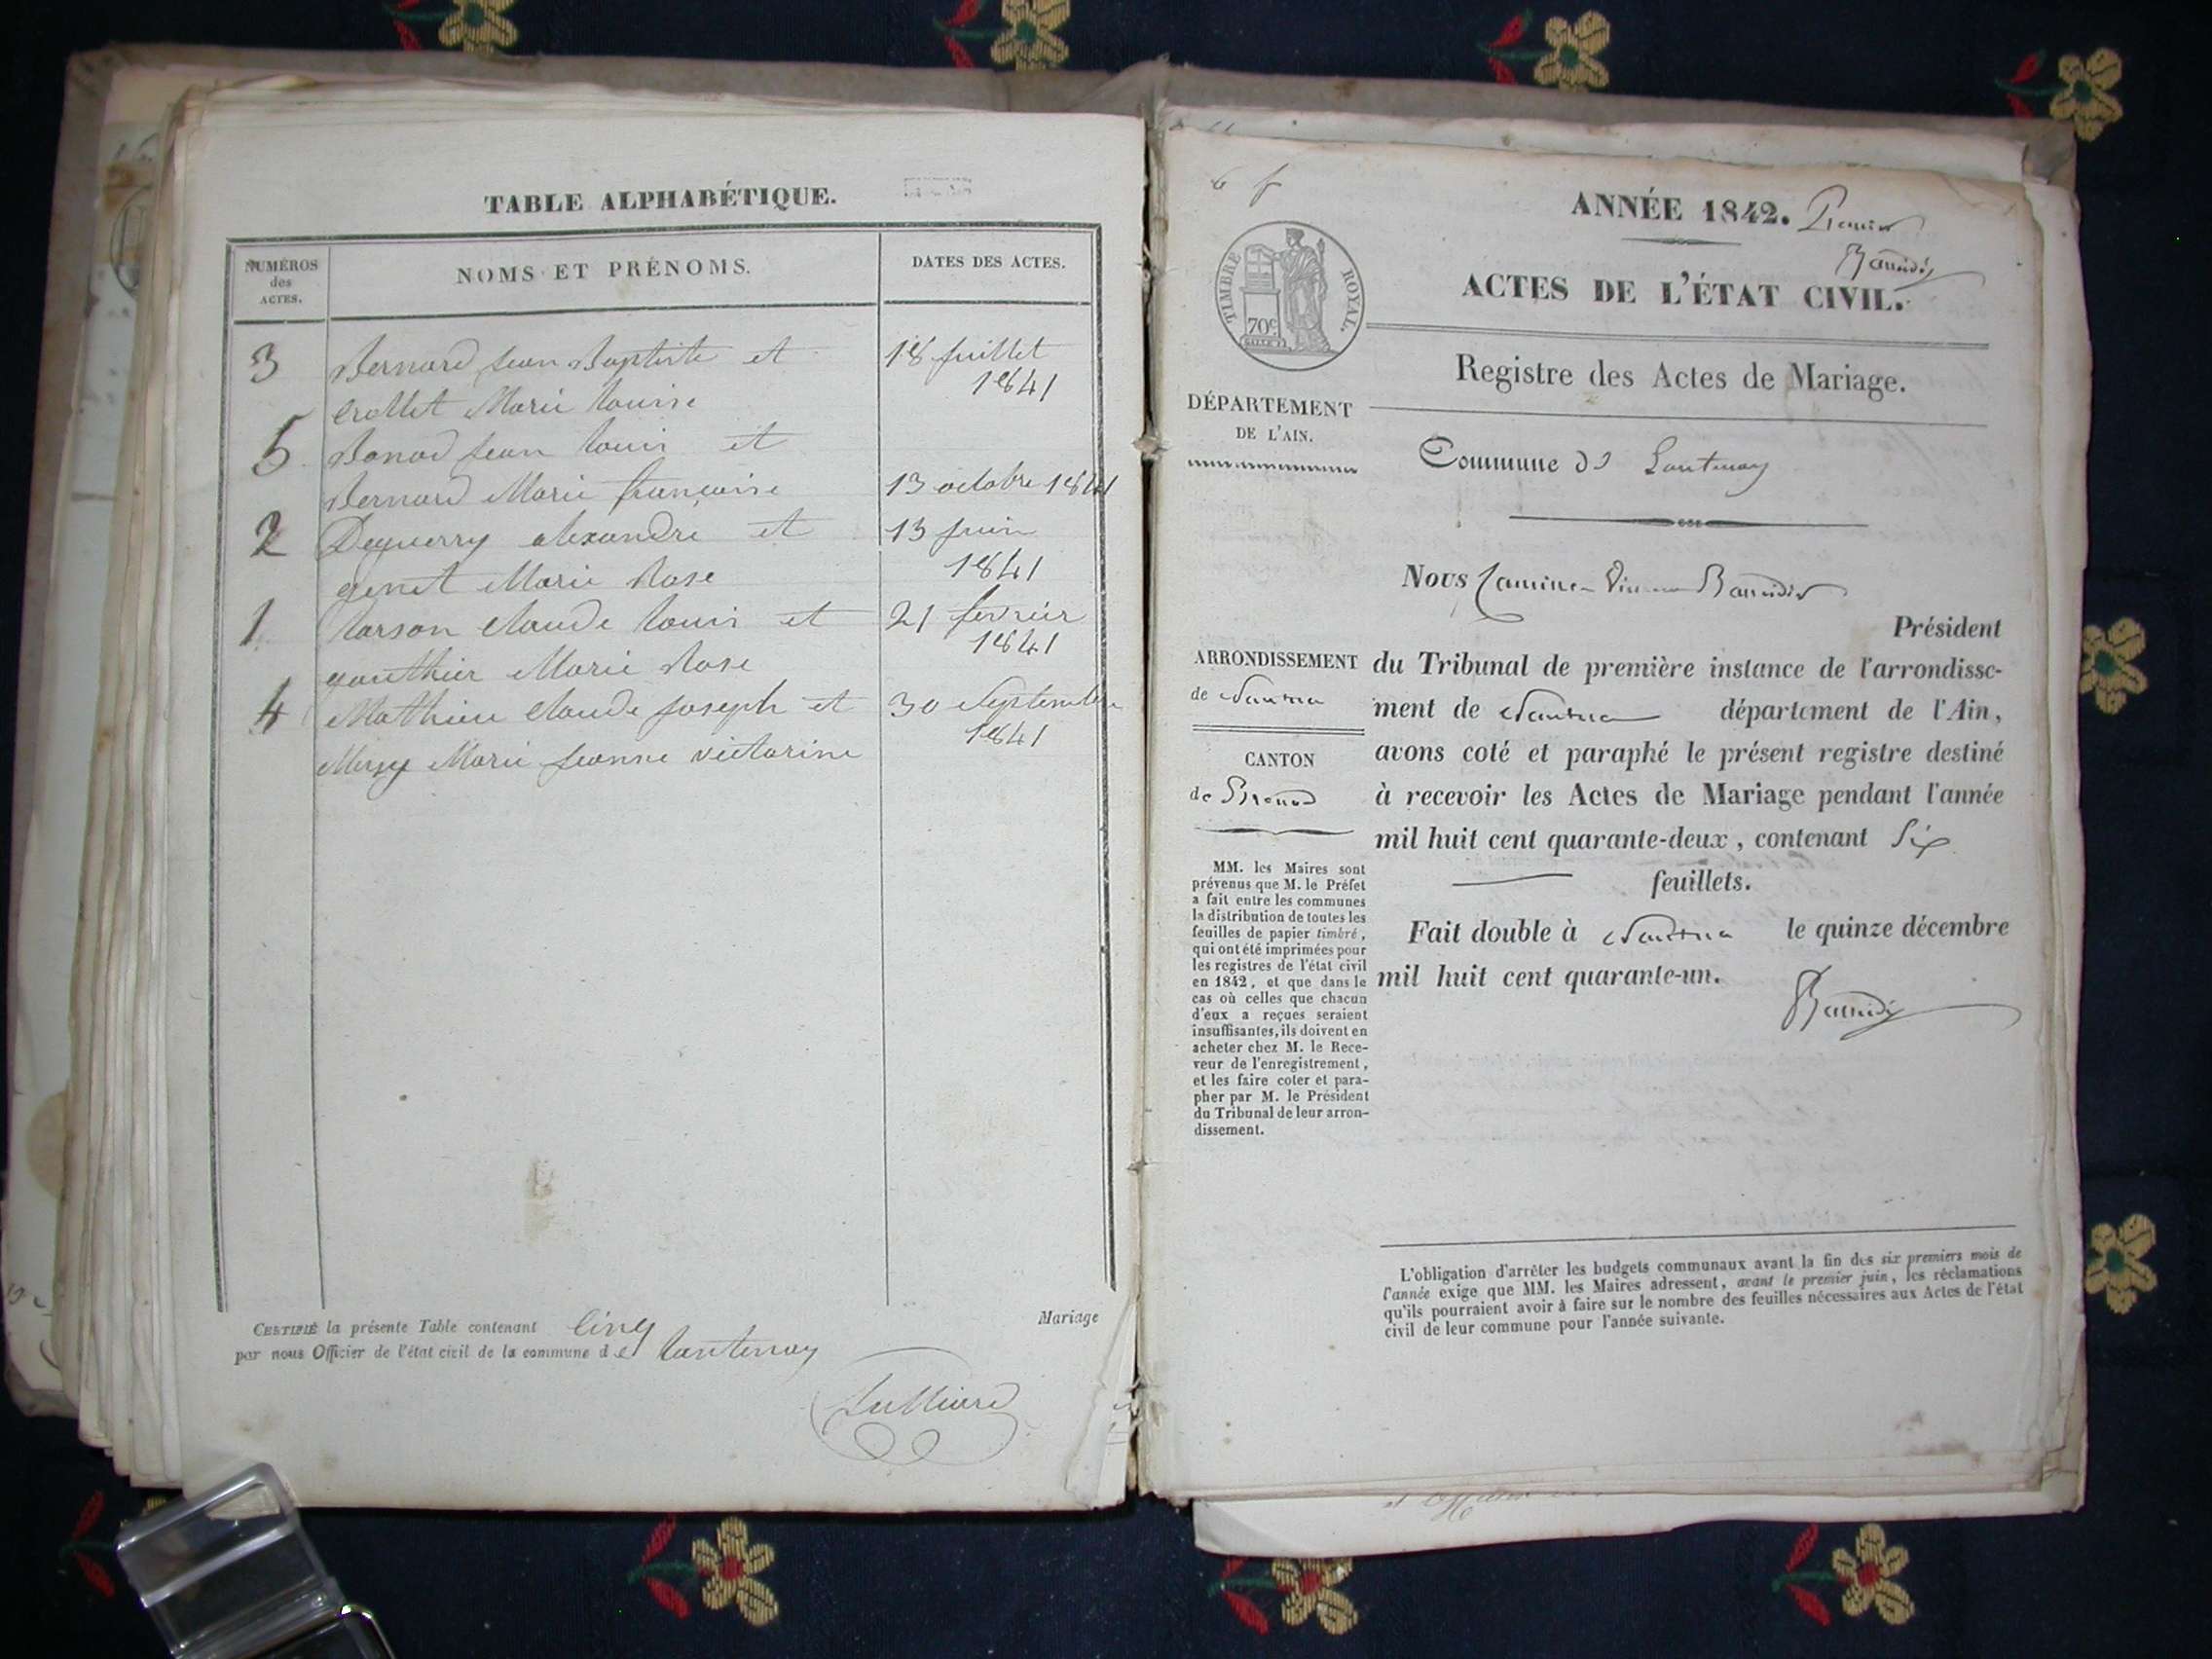 TABLE ALPHABÉTIQUE.
NUMÉROS
des
ACTES.
NOMS ET PRÉNOMS.
DATES DES ACTES.
3 Bernard jean Baptiste et 18 juillet
1841
Crollet Marie louise
5 Bonod jean louis et
Bernard Marie françoise 13 octobre 1841
2 Deguerry alexandre et 13 juin
genet Marie Rose 1841
1 Carson Claude louis et 21 fevrier
1841
gauthier Marie Rose
4 Mathieu Claude joseph et 30 Septembre
1841
Marie jeanne victorine
CERTIFIÉ la présente Table contenant Cinq
par nous Officier de l'état civil de la commune de Lantenay
Mariage
ANNÉE 1842. Premier
Baudin
ACTES DE L'ÉTAT CIVIL.
TIMBRE ROYAL.
70c
Registre des Actes de Mariage.
DÉPARTEMENT
DE L'AIN.
Commune de Lantenay
Nous
Président
ARRONDISSEMENT
de Nantua
CANTON
de Brenod
du Tribunal de première instance de l'arrondisse-
ment de Nantua département de l'Ain,
avons coté et paraphé le présent registre destiné
à recevoir les Actes de Mariage pendant l'année
mil huit cent quarante-deux, contenant Six
feuillets.
Fait double à Nantua le quinze décembre
mil huit cent quarante-un.
MM. les Maires sont
prévenus que M. le Préfet
a fait entre les communes
la distribution de toutes les
feuilles de papier timbré,
qui ont été imprimées pour
les registres de l'état civil
en 1842, et que dans le
cas où celles que chacun
d'eux a reçues seraient
insuffisantes, ils doivent en
acheter chez M. le Rece-
veur de l'enregistrement,
et les faire coter et para-
pher par M. le Président
du Tribunal de leur arron-
dissement.
L'obligation d'arrêter les budgets communaux avant la fin des six premiers mois de
l'année exige que MM. les Maires adressent, avant le premier juin, les réclamations
qu'ils pourraient avoir à faire sur le nombre des feuilles nécessaires aux Actes de l'état
civil de leur commune pour l'année suivante.